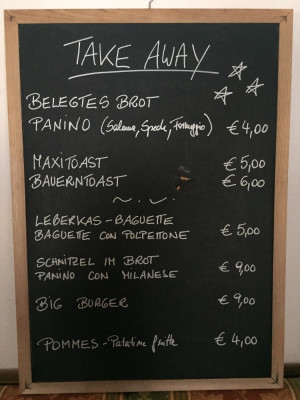 TAKE AWAY
BELEGTES BROT
PANINO (Salame, Speck, Formaggio) € 4,00
MAXITOAST € 5,00
BAUERNTOAST € 6,00
LEBERKAS - BAGUETTE
BAGUETTE CON POLPETTONE € 5,00
SCHNITZEL IM BROT
PANINO CON MILANESE € 9,00
BIG BURGER € 9,00
POMMES - Patatine fritte € 4,00